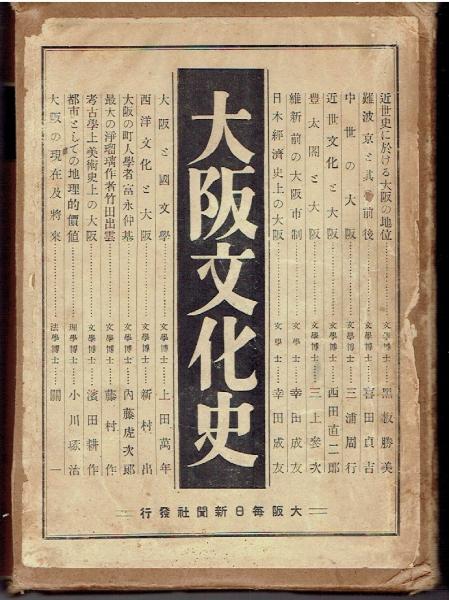 近世史に於ける大阪の地位………文學博士 黑板勝美
難波京と其前後………文學博士 喜田貞吉
中世の大阪………文學博士 三浦周行
近世文化と大阪………文學博士 西田直二郎
豐太閤と大阪………文學博士 三上參次
維新前の大阪市制………文學士 幸田成友
日本經濟史上の大阪………文學士 幸田成友
大阪文化史
大阪と國文學………文學博士 上田萬年
西洋文化と大阪………文學博士 新村出
大阪の町人學者富永仲基………文學博士 內藤虎次郎
最大の淨瑠璃作者竹田出雲………文學博士 藤村作
考古學上美術史上の大阪………文學博士 濱田耕作
都市としての地理的價値………理學博士 小川琢治
大阪の現在及將來………法學博士 關一
大阪每日新聞社發行